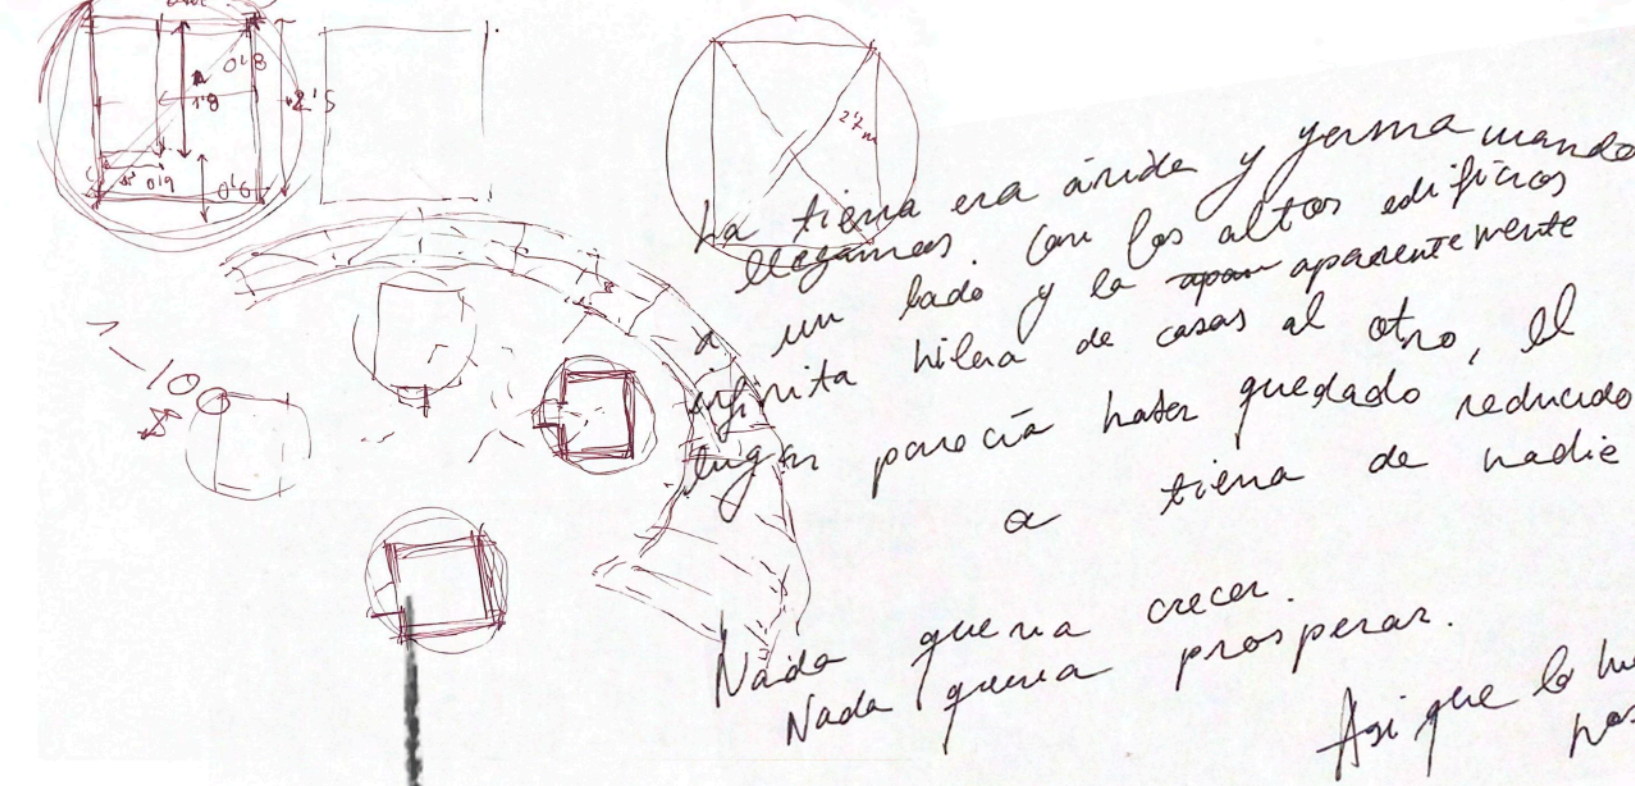 La tierra era árida y yerma cuando
llegamos. Con los altos edificios
a un lado y la apar aparentemente
infinita hilera de casas al otro, el
lugar parecía haber quedado reducido
a tierra de nadie
Nada quería crecer.
Nada quería prosperar.
Así que lo